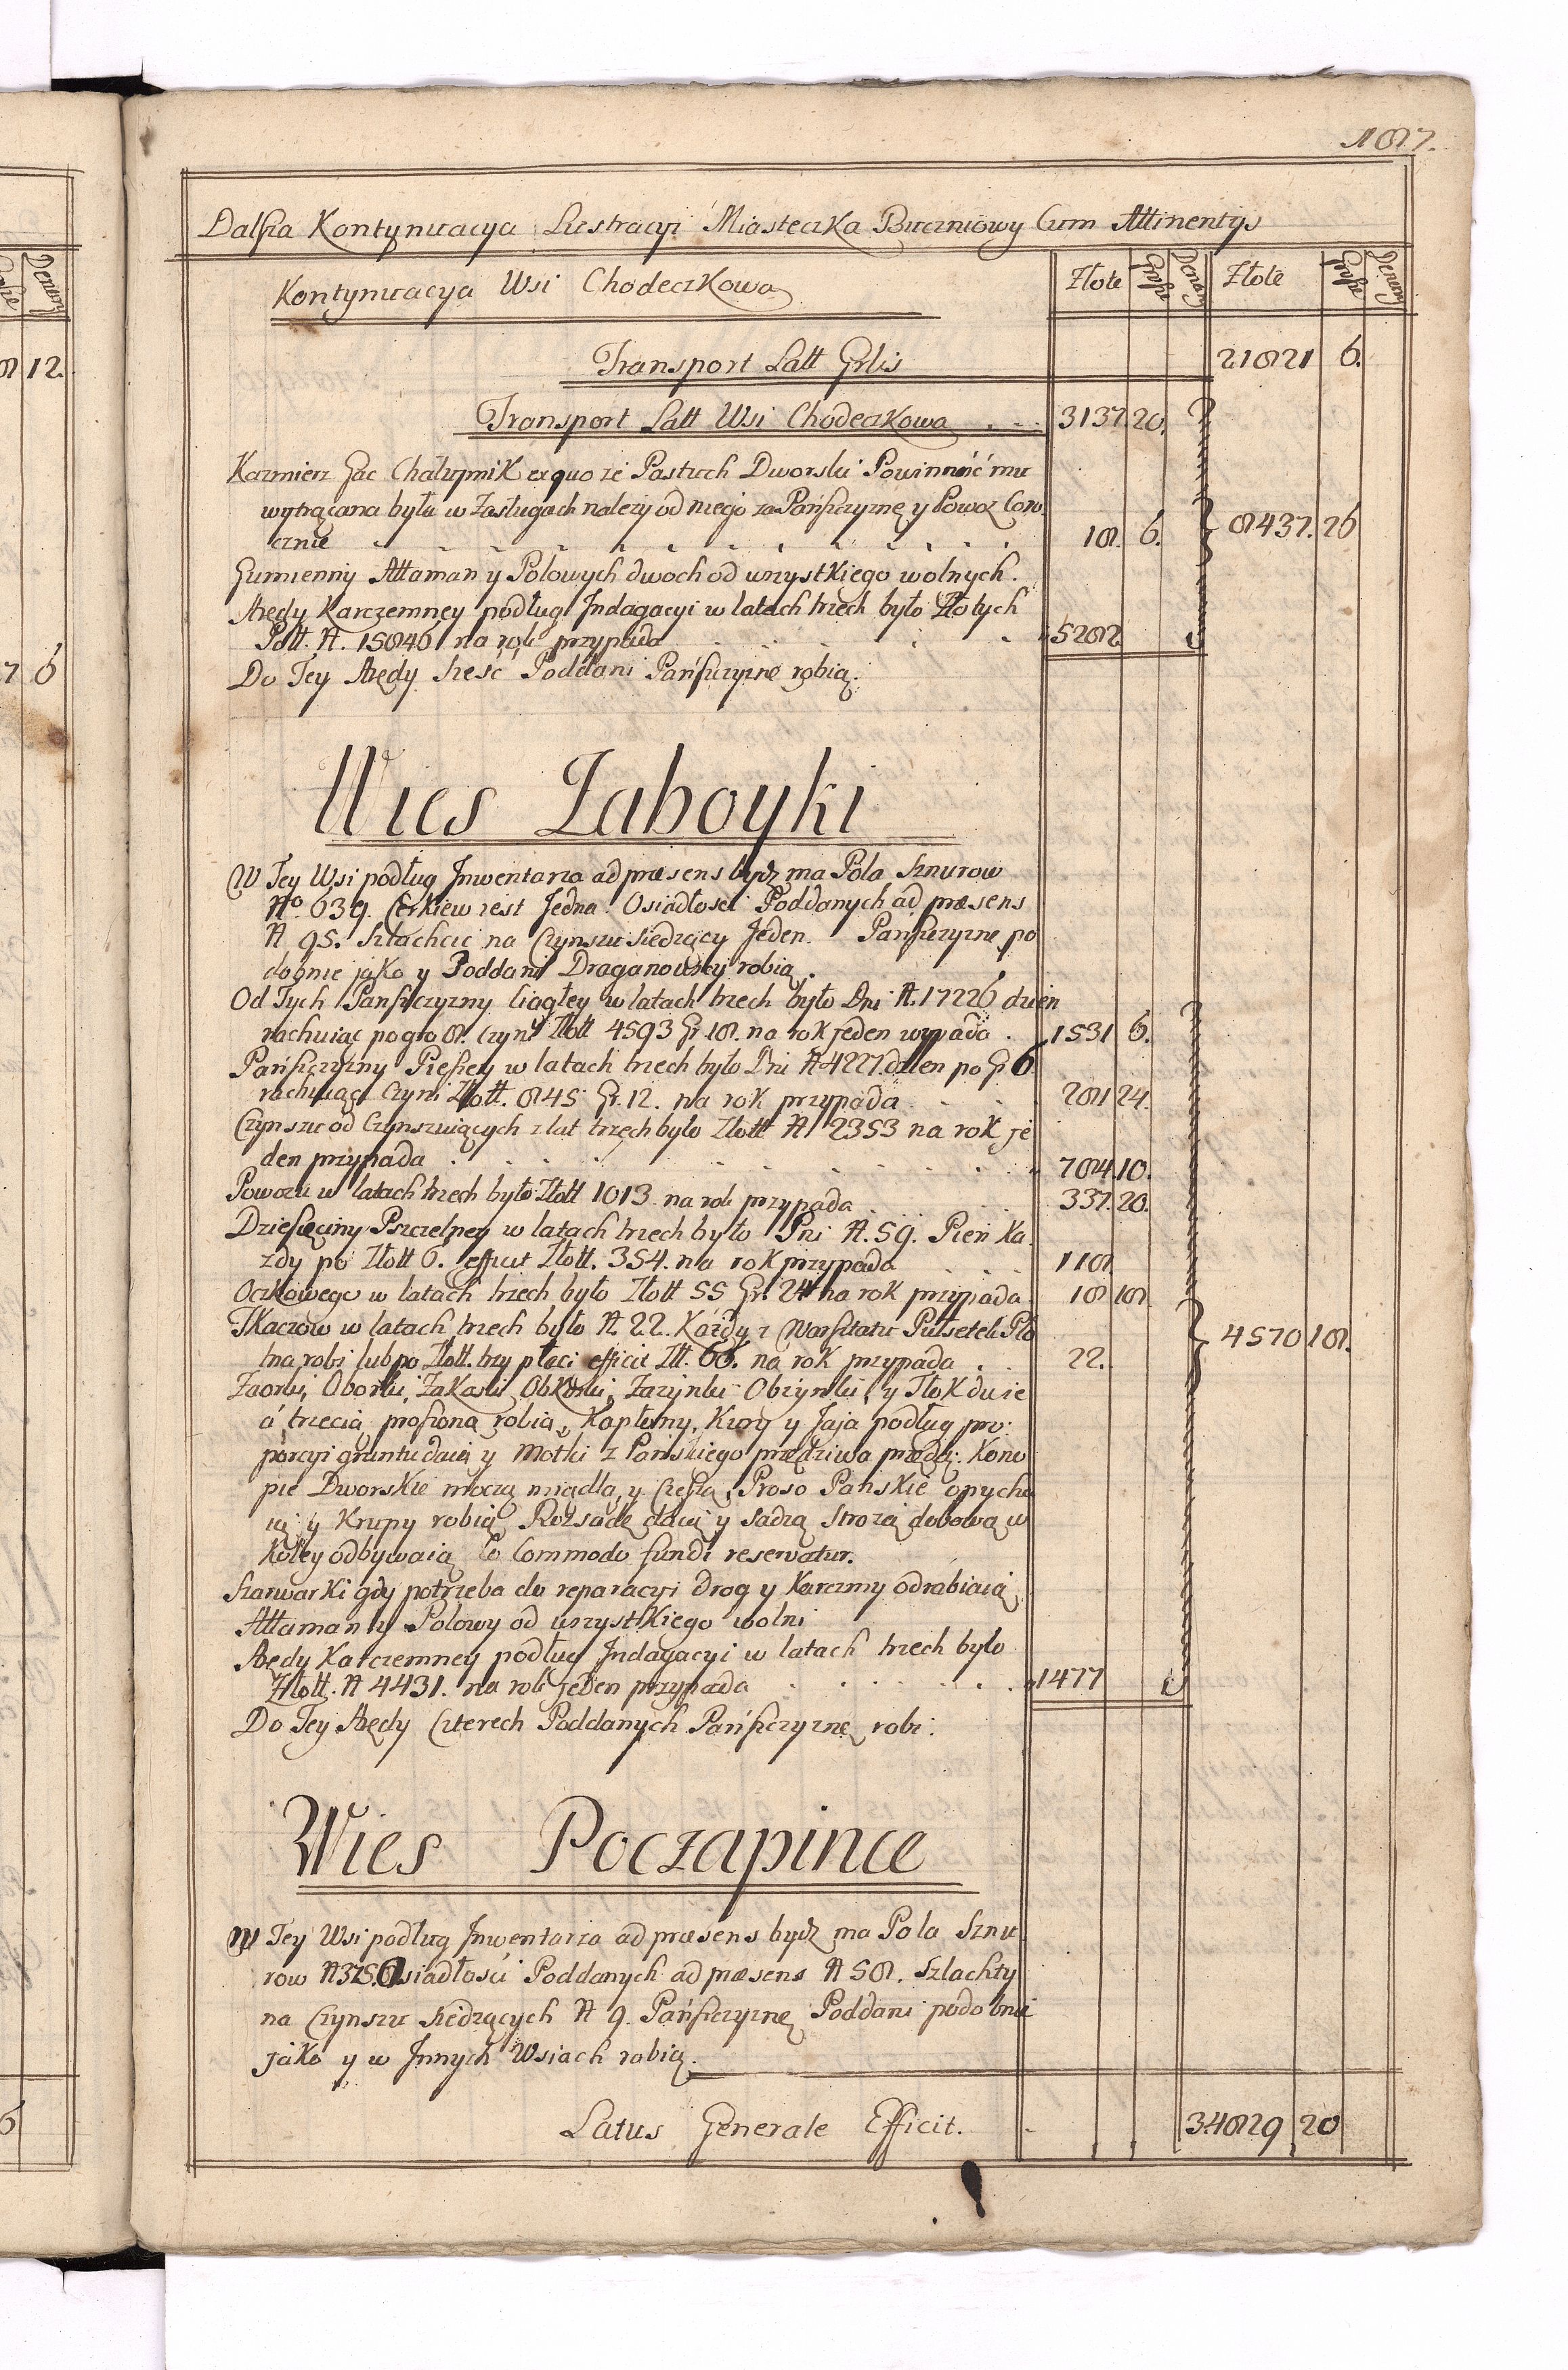 187.
Dalsza Kontynuacya Lustracyi Miasteczka Buczniowy Cum Attinentys
Kontynuacya Wsi Chodeczkowa
Złote Grosze Denary Złote Grosze Denary
Transport Latt Grlis 21821 6.
Transport Latt Wsi Chodeczkowa 3137. 20.
Kazmierz Gac Chałupnik ex quo że Pastuch Dworski Powinność mu
wytrącana była w Zasługach należy od niego za Pańszczyznę y Powoz Coro
cznie 18. 6. 8437. 26
Gumienny Attaman y Polowych dwoch od wszystkiego wolnych.
Arędy Karczemney podług Jndagacyi w latach trzech było Złotych
Poll. N. 15846 na rok przypada 5282
Do Tey Arędy szesć Poddani Pańszczyznę robią.
Wies Zaboyki
W Tey Wsi podług Jnwentarza ad præsens bydz ma Pola Sznurow
No. 639. Cerkiew jest Jedna. Osiadłosci Poddanych ad præsens
N 95. Szlachcic na Czynszu siedzący Jeden. Pańszczyznę po
dobnie jako y Poddani Draganowscy robią.
Od Tych Pańszczyzny Ciągłey w latach trzech było Dni N. 17226 dzien
rachuiąc po gro 8. czyni Złott 4593 Gr 18. na rok jeden wypada 1531 6.
Pańszczyzny Pieszey w latach trzech było Dni N 4227. dzien po Gr 6
rachuiąc czyni Złott. 845 Gr. 12. na rok przypada 281 24.
Czynszu od Czynszuiących z lat trzech było Złott N 2353 na rok je
den przypada 784 10.
Powozu w latach trzech było Złott 1013 na rok przypada 337. 20.
Dziesięciny Pszczelney w latach trzech było Pni N. 59. Pień Ka
zdy po Złott 6. efficit Złott. 354. na rok przypada 118.
Oczkowego w latach trzech było Złott 55 Gr. 24 na rok przypada 18 18
Tkaczow w latach trzech było N. 22. Każdy z Warsztatu Pułsetek Płó
tna robi lub po Złott. trzy płaci efficit Złł. 66. na rok przypada 22. 4570 18.
Zaorki, Oborki, Zakoski, Obkoski, Zazynki Obzynki, y Tłok dwie
á trzecią proszoną robią, Kapłony, Kury y Jaja podług pro:
porcyi gruntu daią y Motki z Pańskiego przędziwa przędą: Kono
pie Dworskie moczą miądlą y Czeszą, Proso Pańskie opycha
ią y Krupy robią, Rozsadę daią y Sadzą Strożą dobową w
Koley odbywaią Co Commodo fundi reservatur.
Szarwarki gdy potrzeba do reparacyi drog y Karczmy odrabiaią.
Attaman y Polowy od wszystkiego wolni
Arędy Karczemney podług Jndagacyi w latach trzech było
Złott. N 4431. na rok jeden przypada 1477
Do Tey Arędy Czterech Poddanych Pańszczyznę robi:
Wies Poczapince
W Tey Wsi podług Jnwentarza ad præsens bydz ma Pola Sznu
row N 375. Osiadłosci Poddanych ad præsens N 58. Szlachty
na Czynszu siedzących N 9. Pańszczyznę Poddani podobnie
jako y w Jnnych Wsiach robią.
Latus Generale Efficit. 34829 20